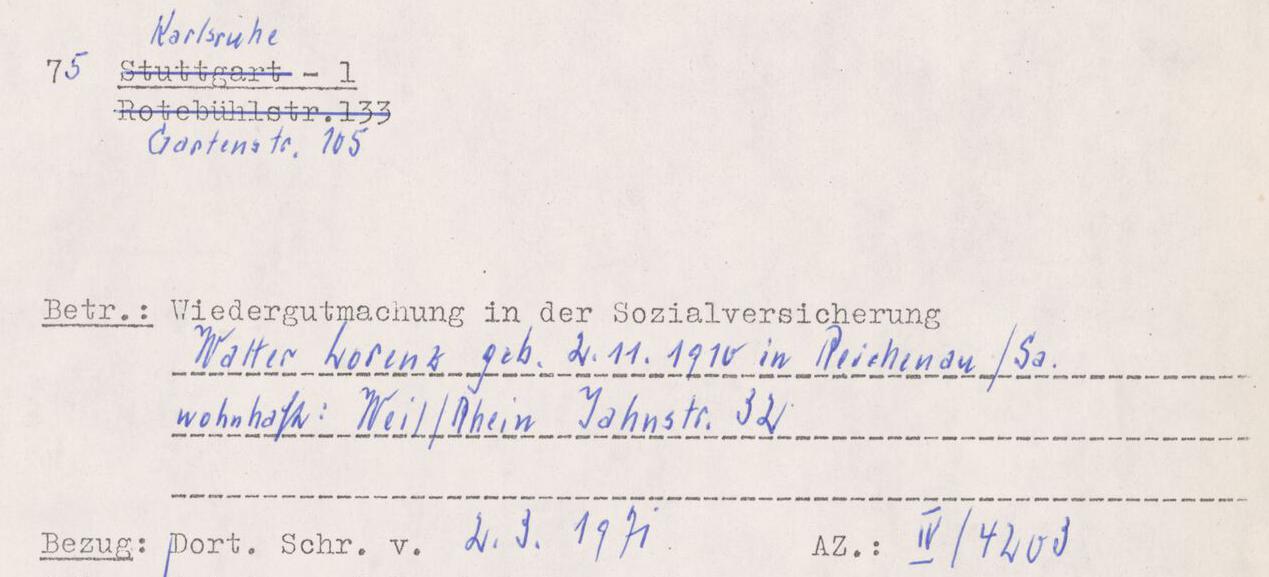 Karlsruhe
75 Stuttgart - 1
Rotebühlstr.133
Gartenstr. 105
Betr.: Wiedergutmachung in der Sozialversicherung
Walter Lorenz geb. 2.11.1910 in Reichenau/Sa.
wohnhaft: Weil/Rhein Jahnstr. 32
Bezug: Dort. Schr. v. 2.3. 1971 AZ.: IV/4203